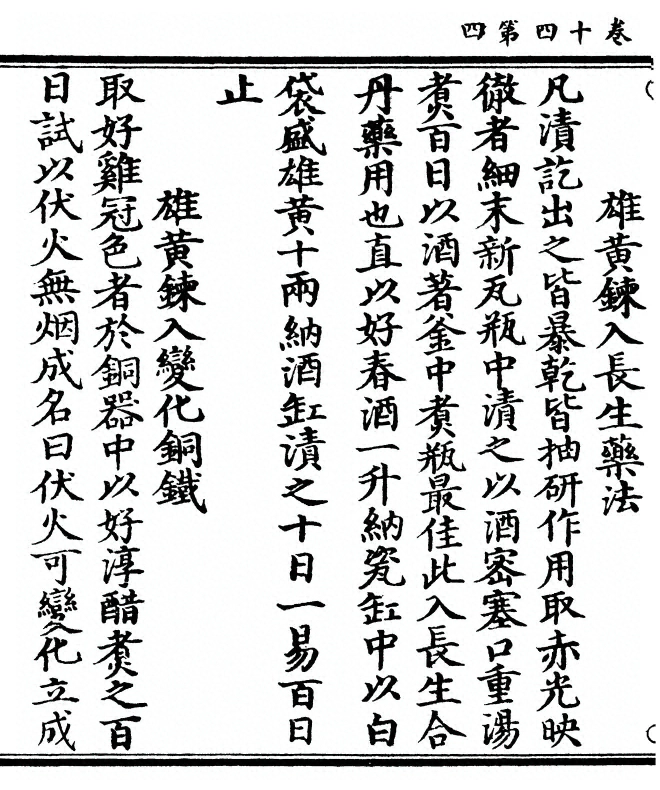 卷十四第四
雄黄鍊入長生藥法
凡漬訖出之皆暴乾皆抽研作用取赤光映
徹者細末新瓦瓶中漬之以酒密塞口重湯
煑百日以酒著釜中煑瓶最佳此入長生合
丹藥用也直以好春酒一升納瓷缸中以白
袋盛雄黄十兩納酒缸漬之十日一易百日
止
雄黄鍊入變化銅鐵
取好雞冠色者於銅器中以好淳醋煑之百
日試以伏火無烟成名曰伏火可變化立成